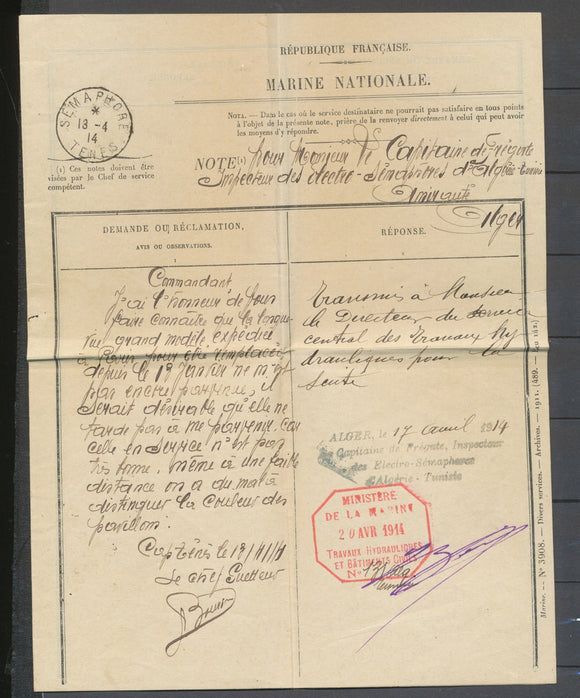 RÉPUBLIQUE FRANÇAISE.
MARINE NATIONALE.
SEMAPHORE
*
13-4
14
TENES
NOTA. — Dans le cas où le service destinataire ne pourrait pas satisfaire en tous points
à l'objet de la présente note, prière de la renvoyer directement à celui qui peut avoir
les moyens d'y répondre.
(1) Ces notes doivent être
visées par le Chef de service
compétent.
NOTE(1) pour Monsieur le Capitaine de Frégate
Inspecteur des électro-Sémaphores d'Algérie-Tunisie
Amirauté
Alger
DEMANDE OU RÉCLAMATION,
AVIS OU OBSERVATIONS.
1
Commandant
J'ai l'honneur de vous
faire connaître que la longue
vue grand modèle expédiée
pour être remplacée
depuis le 13 Janvier ne m'est
pas encore parvenue, il
serait désirable qu'elle ne
tarde pas à me parvenir, car
celle en service n'est pas
très bonne, même à une faible
distance on a du mal à
distinguer la couleur des
pavillons.
Cap Ténès le 13/4/14
Le chef Guetteur
RÉPONSE.
1
Transmis à Monsieur
le Directeur du service
central des Travaux hy-
drauliques pour la
suite
ALGER, le 17 avril 1914
Le Capitaine de Frégate, Inspecteur
des Electro-Sémaphores
d'Algérie - Tunisie
MINISTÈRE
DE LA MARINE
20 AVR 1914
TRAVAUX HYDRAULIQUES
ET BÂTIMENTS CIVILS
N°
Marine. — N° 3908. — Divers services. — Archives. — 1911. (489.